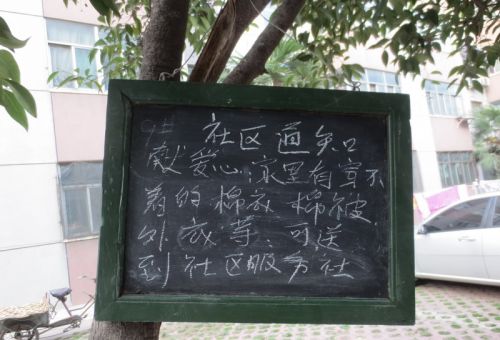 社区通知
献爱心:家里有穿不
着的棉衣 棉被
外衣等、可送
到社区服务社